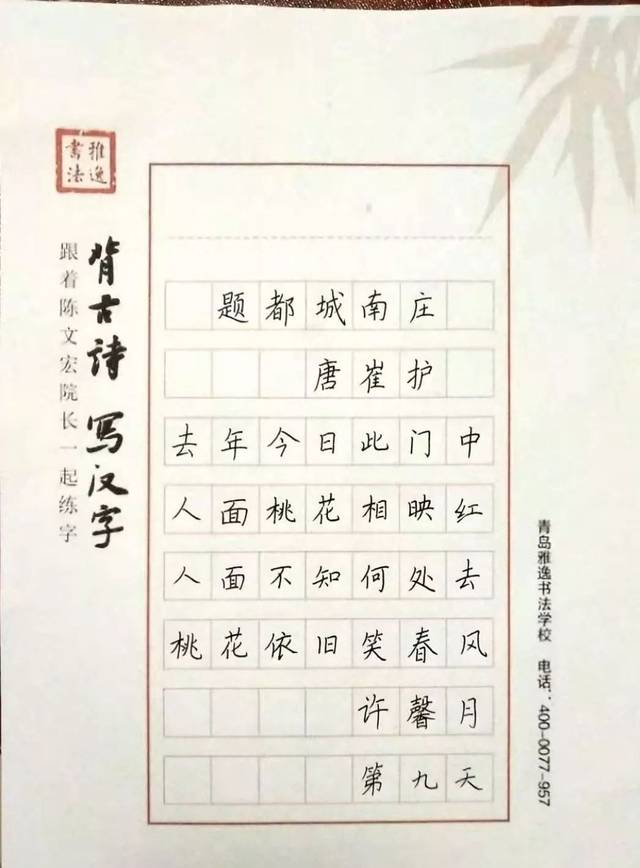 雅逸
书法
背古诗 写汉字
跟着陈文宏院长一起练字
题都城南庄
唐崔护
去年今日此门中
人面桃花相映红
人面不知何处去
桃花依旧笑春风
许馨月
第九天
青岛雅逸书法学校 电话:400-0077-957